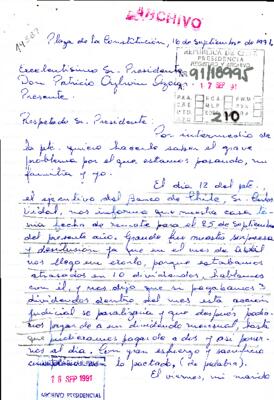 ARCHIVO
Plaza de la Constitución, 16 de Septiembre de 1991
Excelentísimo Sr. Presidente
Don Patricio Aylwin Azócar
Presente
REPUBLICA DE CHILE
PRESIDENCIA
REGISTRO Y ARCHIVO
91/18995
17 SEP 91
210
Respetado Sr. Presidente:
Por intermedio de
la pte. quiero hacerle saber el grave
problema por el que estamos pasando, mi
familia y yo.
El día 12 del pte.,
el ejecutivo del Banco de Chile, Sr. Carlos
Vidal, nos informa que nuestra casa
fecha de remate para el 25 de Septiembre
del presente año. Grande fue nuestra sorpresa
y desilusión ya que en el mes de Abril
nos llegó un carta, porque estábamos
atrasados en 10 dividendos, hablamos
con él, y nos dijo que si pagábamos 3
dividendos dentro del mes esta acción
judicial se paralizaría y que después
pagar de a un dividendo mensual, hasta
que pudiéramos pagarlo a dos y así
al día. Con gran esfuerzo y sacrificio
lo pactado, (de palabra).
El viernes, mi marido
18 SEP 1991
ARCHIVO PRESIDENCIAL